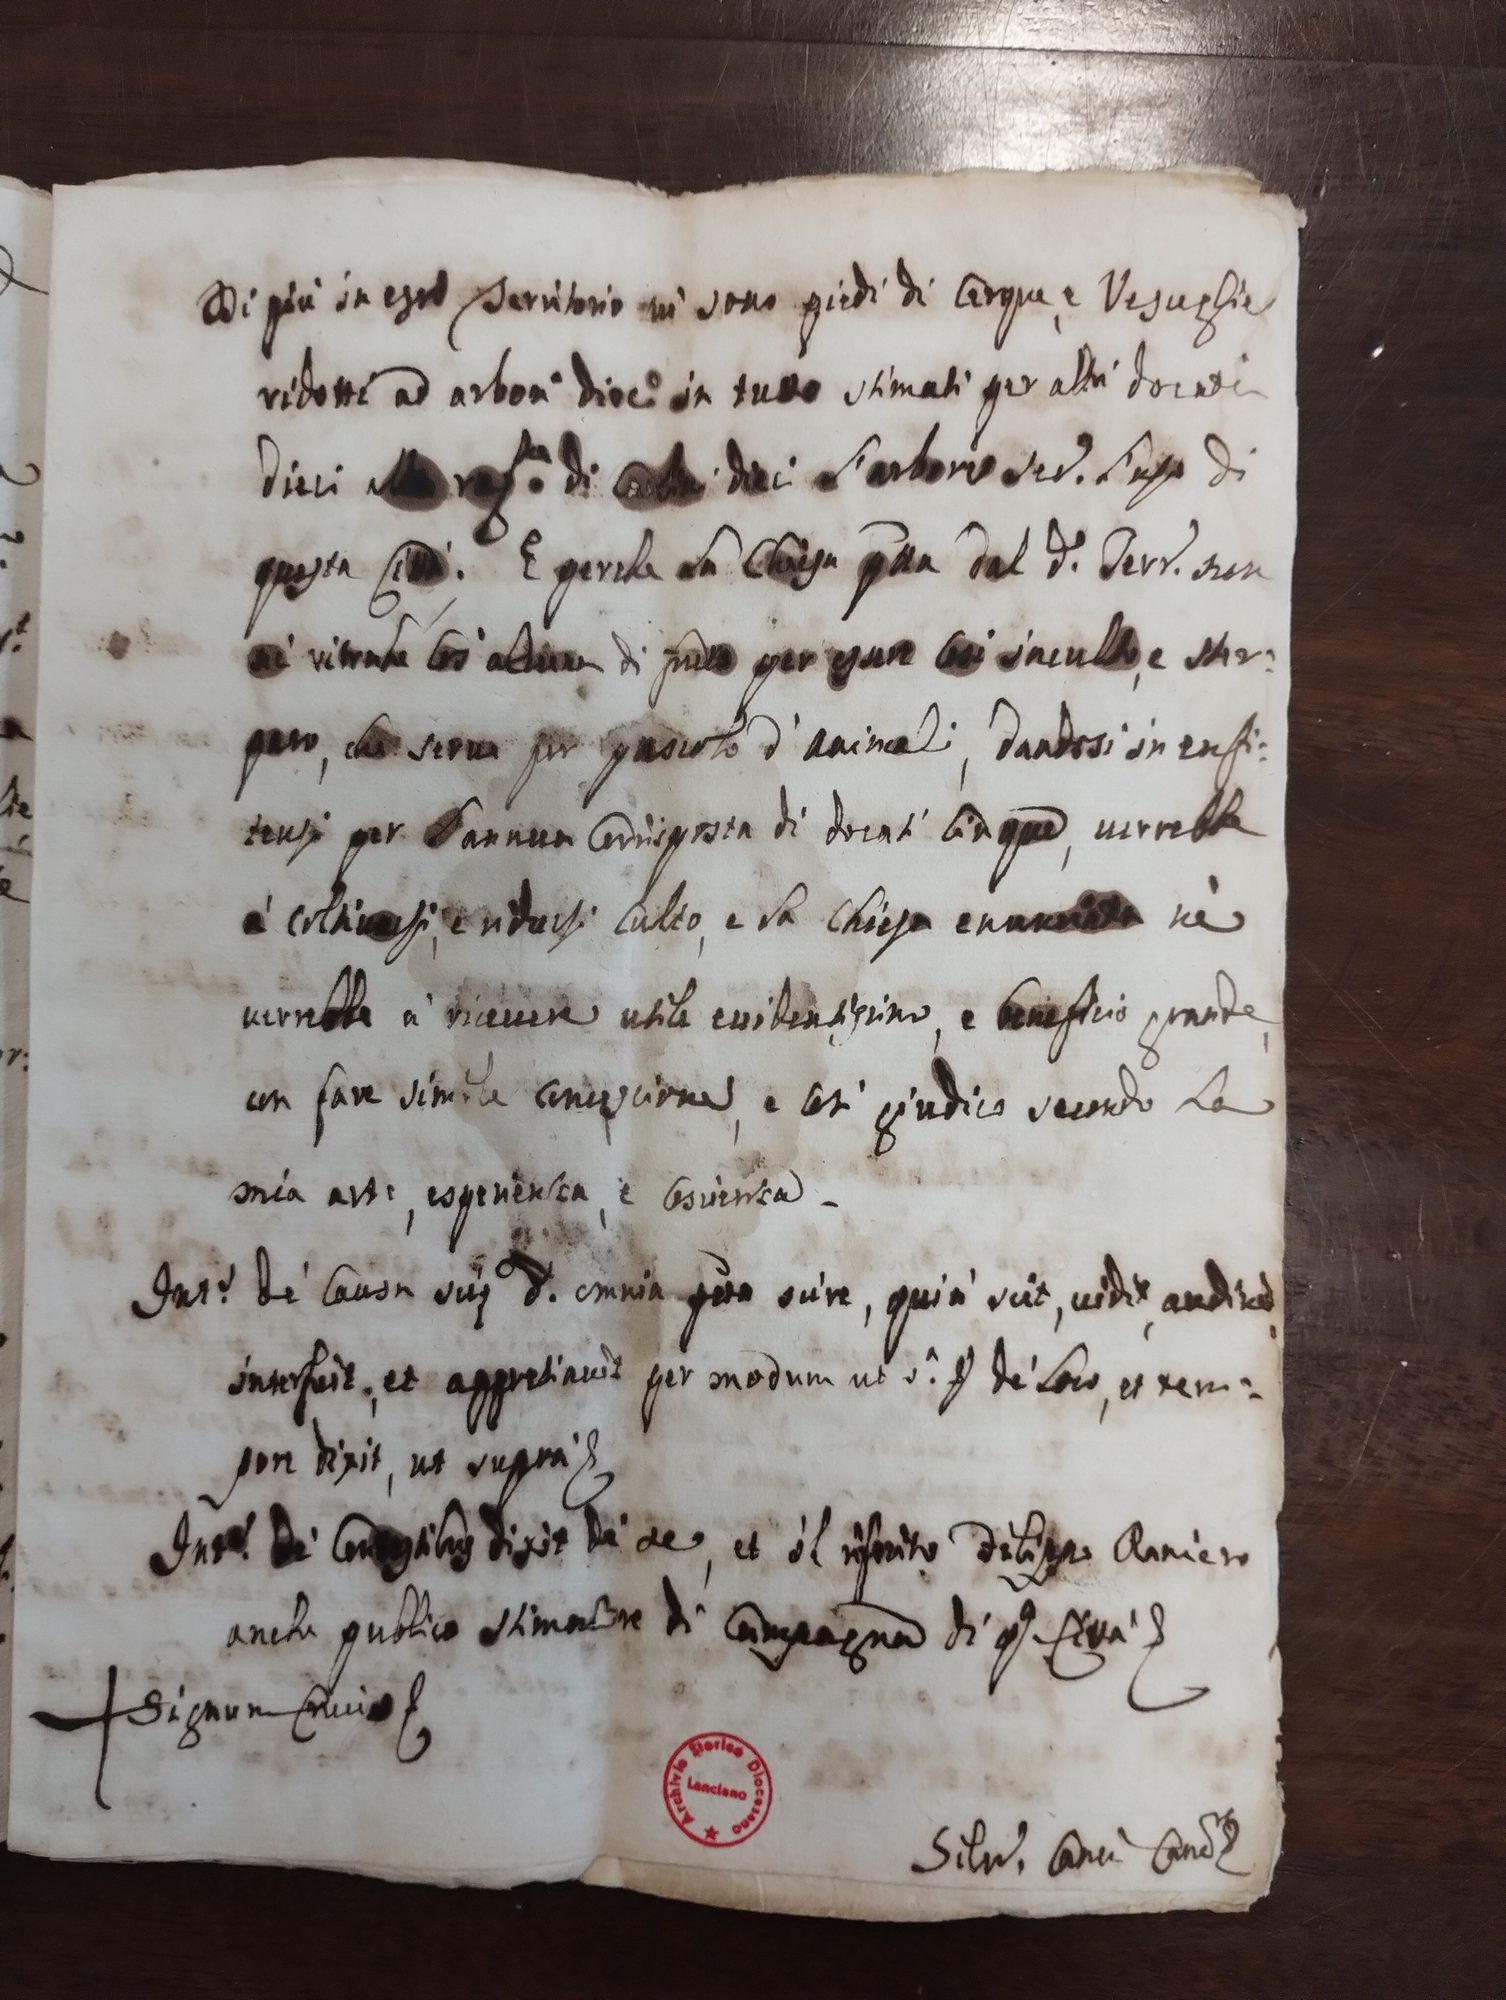 Di più in esso Territorio vi sono piedi di Cerque, e Vesceglie
ridotti ad arbori dieci in tutto stimati per altri docati
dieci alla rag.e di carlini dieci l'arbore sec.o l'uso di
questa Città. E perche la Chiesa p̃tta dal d.o Terr.o non
ne ritrahe cos'alcuna di frutto per essere così inculto, e ster-
paro, che serve per pascolo d'animali, dandosi in enfi-
teusi per l'annua corrisposta di docati cinque, verrebbe
à coltivarsi, e ridursi culto, e la Chiesa enunciata nè
verrebbe à ricevere utile evidentissimo, e beneficio grande,
con fare simile concessione, e così giudico secondo la
mia arte, esperienza, e coscienza -
Int.s dè causa scientiæ d. omnia p̃tta scire, quià scit, vidit, audivit,
interfuit, et appretiavit per modum ut s.a dè loco, et tem-
pore dixit, ut suprà
Int.s dè contestibus dixit dè se, et il riferito Raniero
anche publico stimatore di Campagna di q.a Città
Signum Crucis
Archivio Storico Diocesano
Lanciano